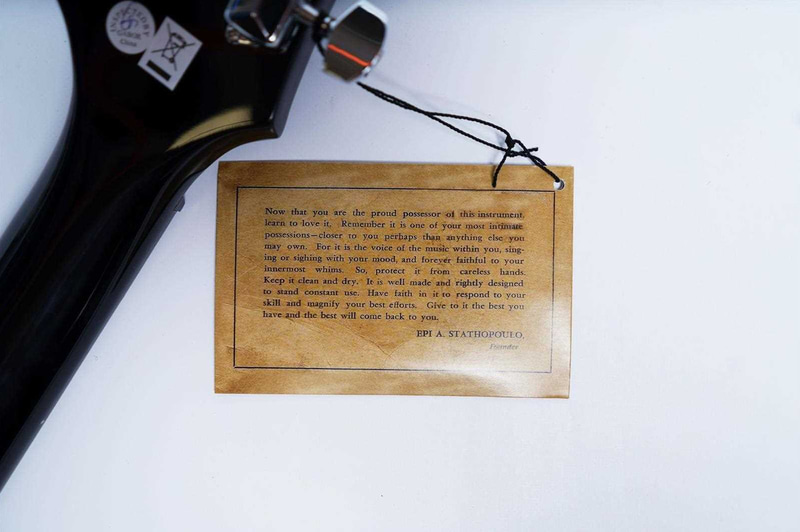 INSPECTED BY
Now that you are the proud possessor of this instrument,
learn to love it. Remember it is one of your most intimate
possessions—closer to you perhaps than anything else you
may own. For it is the voice of the music within you, sing-
ing or sighing with your mood, and forever faithful to your
innermost whims. So, protect it from careless hands.
Keep it clean and dry. It is well made and rightly designed
to stand constant use. Have faith in it to respond to your
skill and magnify your best efforts. Give to it the best you
have and the best will come back to you.
EPI A. STATHOPOULO,
Founder